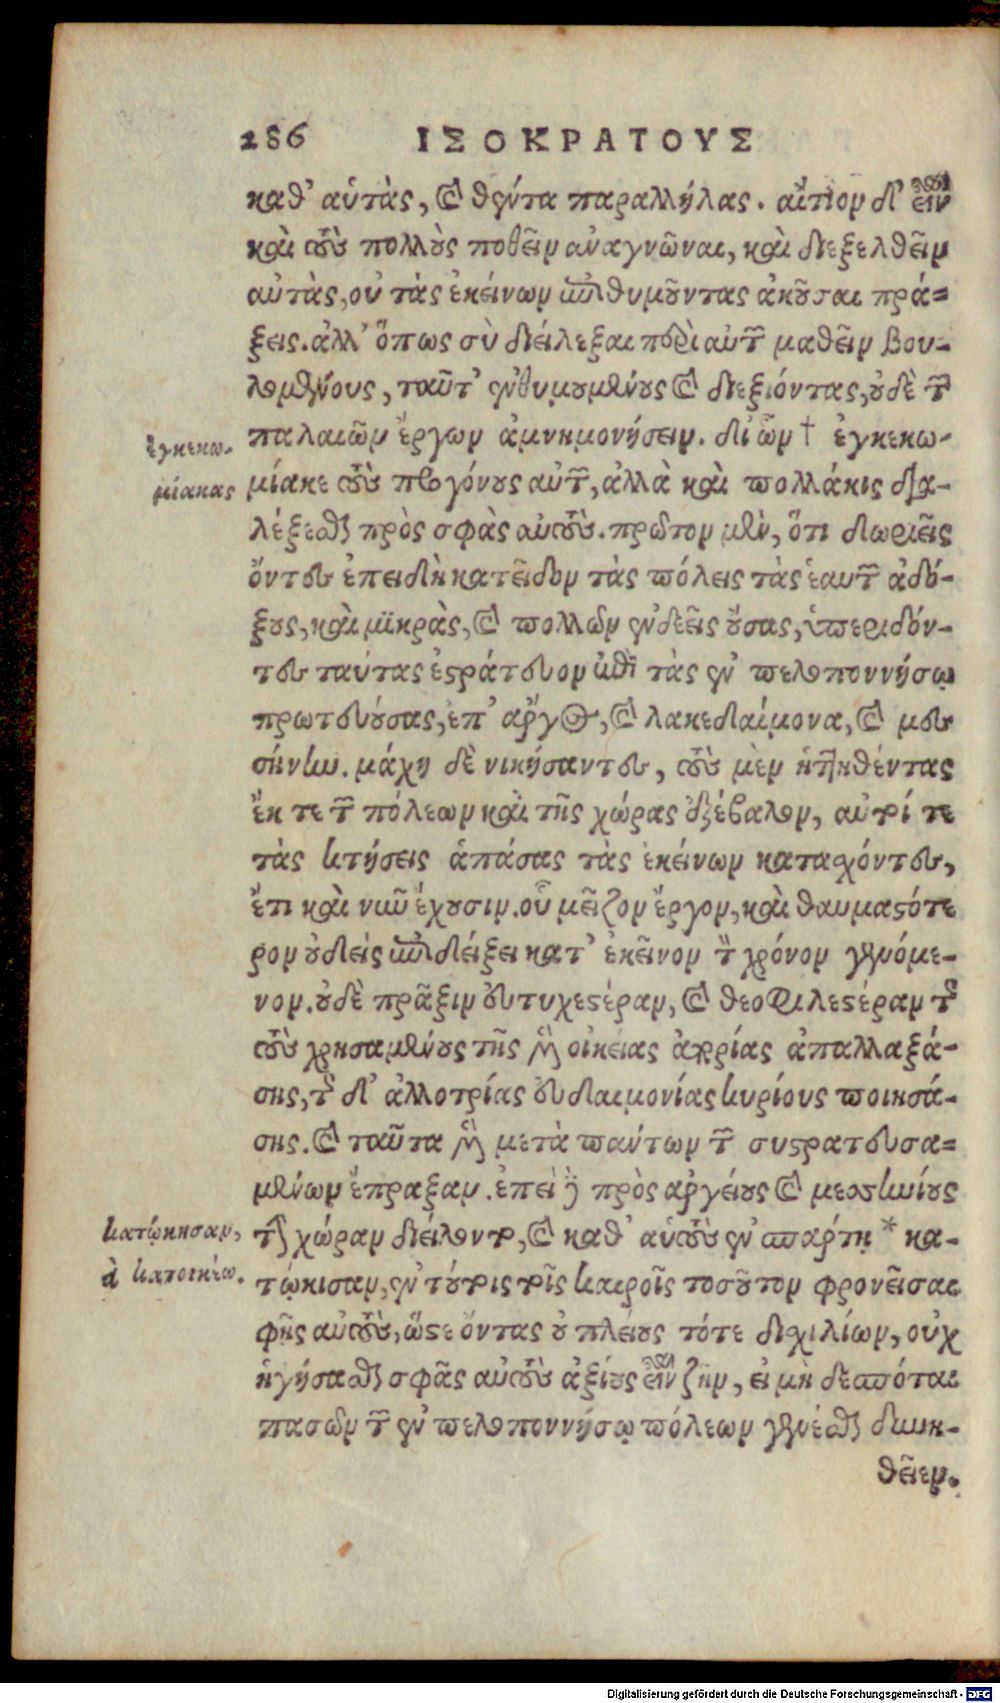 286 ΙΣΟΚΡΑΤΟΥΣ
καθ' αὑτὰς, καὶ θέντα παραλλήλας. αἴτιον δ' εἶναι
καὶ τοὺς πολλοὺς ποθεῖν ἀναγνῶναι, καὶ διεξελθεῖν
αὐτὰς, οὐ τὰς ἐκείνων ἐπιθυμοῦντας ἀκοῦσαι πρά=
ξεις. ἀλλ' ὅπως σὺ διείλεξαι περὶ αὐτῶν μαθεῖν βου-
λομένους, ταῦτ' ἐνθυμουμένους καὶ διεξιόντας, οὐδὲ τῶν
παλαιῶν ἔργων ἀμνημονήσειν. δι' ὧν † ἐγκεκω-
μίακε τοὺς προγόνους αὐτῶν, ἀλλὰ καὶ πολλάκις δια-
λέξεσθαι πρὸς σφὰς αὐτούς. πρῶτον μὲν, ὅτι δωριεῖς
ὄντες ἐπειδὴ κατεῖδον τὰς πόλεις τὰς ἑαυτῶν ἀδό-
ξους, καὶ μικρὰς, καὶ πολλῶν ἐνδεεῖς οὔσας, ὑπεριδόν-
τες ταύτας ἐστράτευον ἐπὶ τὰς ἐν πελοποννήσῳ
πρωτευούσας, ἐπ' ἄργος, καὶ λακεδαίμονα, καὶ μεσ
σήνην. μάχῃ δὲ νικήσαντες, τοὺς μὲν ἡττηθέντας
ἔκ τε τῶν πόλεων καὶ τῆς χώρας ἐξέβαλον, αὐτοί τε
τὰς κτήσεις ἁπάσας τὰς ἐκείνων κατασχόντες,
ἔτι καὶ νῦν ἔχουσιν. οὗ μεῖζον ἔργον, καὶ θαυμαστότε
ρον οὐδεὶς ἐπιδείξει κατ' ἐκεῖνον τὸν χρόνον γενόμε-
νον. οὐδὲ πρᾶξιν εὐτυχεστέραν, καὶ θεοφιλεστέραν τῆς
τοὺς χρησαμένους τῆς μὲν οἰκείας ἀπορίας ἀπαλλαξά-
σης, τῆς δ' ἀλλοτρίας εὐδαιμονίας κυρίους ποιησά-
σης. καὶ ταῦτα μὲν μετὰ πάντων τῶν συστρατευσα=
μένων ἔπραξαν. ἐπεὶ δὲ πρὸς ἀργείους καὶ μεσσηνίους
τὴν χώραν διείλοντο, καὶ καθ' αὑτοὺς ἐν σπάρτῃ * κα-
τῴκισαν, ἐν τούτοις τοῖς καιροῖς τοσοῦτον φρονεῖσαι
φῇς αὐτοὺς, ὥστε ὄντας οὐ πλείους τότε δισχιλίων, οὐχ
ἡγήσασθαι σφᾶς αὐτοὺς ἀξίους εἶναι ζῆν, εἰ μὴ δεσπόται
πασῶν τῶν ἐν πελοποννήσῳ πόλεων γενέσθαι δυνη-
θεῖεν.
ἐγκεκω-
μίακας
κατῴκησαν,
ἀ κατοικέω.
Digitalisierung gefördert durch die Deutsche Forschungsgemeinschaft - DFG